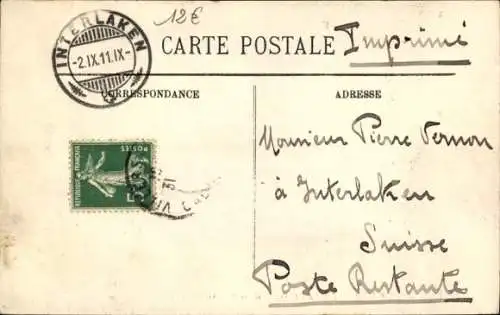 12€
INTERLAKEN
-2.IX.11.IX-
CARTE POSTALE
Imprimé
CORRESPONDANCE
ADRESSE
REPUBLIQUE FRANÇAISE
POSTES
5
Monsieur Pierre Vernon
à Interlaken
Suisse
Poste Restante